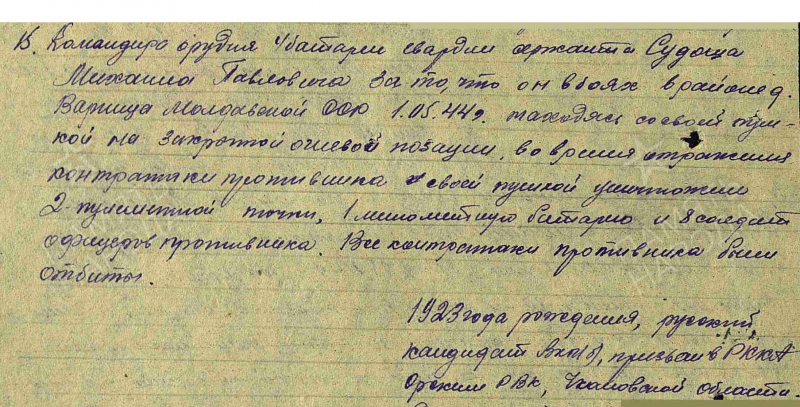 15. Командира орудия 4 батареи гвардии сержанта Судоца
Михаила Павловича за то, что он в боях в районе д.
Варница Молдавской ССР 1.05.44г. находясь со своей пуш-
кой на закрытой огневой позации, во время отражения
контратаки противника своей пушкой уничтожил
2 пулеметной точки, 1 минометную батарею и 8 солдат
офицеров противника. Все контратаки противника были
отбиты.
1923 года рождения, русский
кандидат ВКП(б), призван в РККА
Орским РВК, Чкаловской области.